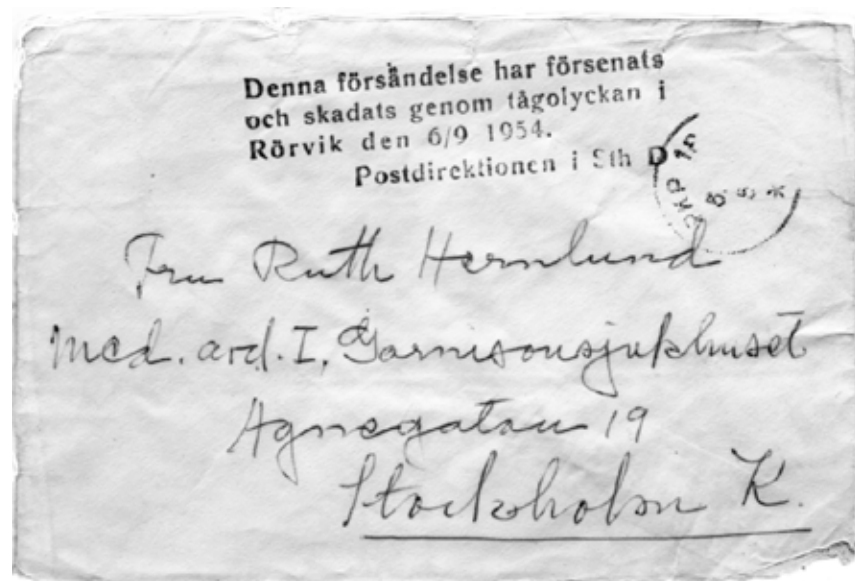 Denna försändelse har försenats
och skadats genom tågolyckan i
Rörvik den 6/9 1954.
Postdirektionen i Sth D
Fru Ruth Hernlund
Med. avd. I, Garnisonssjukhuset
Agnegatan 19
Stockholm K.